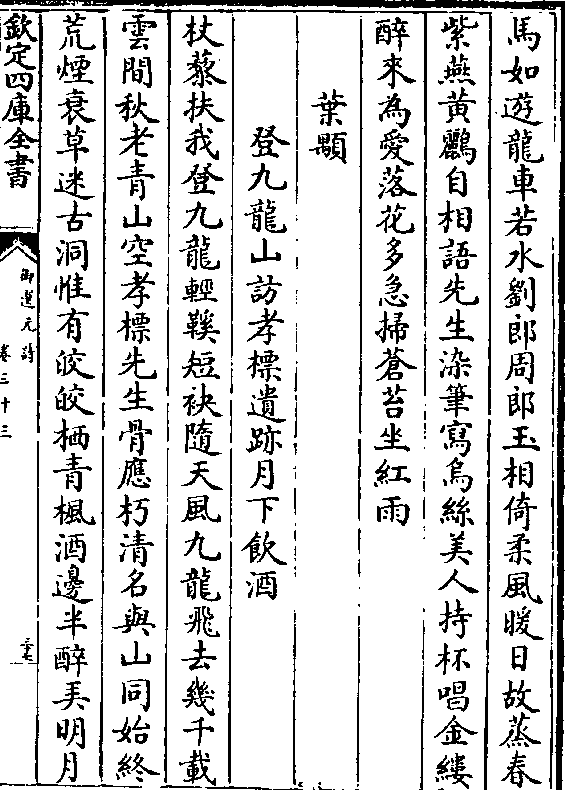 馬如遊龍車若水劉郎周郎玉相倚柔風暖日故蒸春
紫燕黃鸝自相語先生染筆寫烏絲美人持杯唱金縷
醉來為愛落花多急掃蒼苔坐紅雨
葉顒
登九龍山訪孝標遺跡月下飲酒
杖藜扶我登九龍輕鞵短袂隨天風九龍飛去幾千載
雲間秋老青山空孝標先生骨應朽清名與山同始終
荒煙衰草迷古洞惟有皎皎栖青楓酒邊半醉弄明月
欽定四庫全書
御選元詩
卷三十三